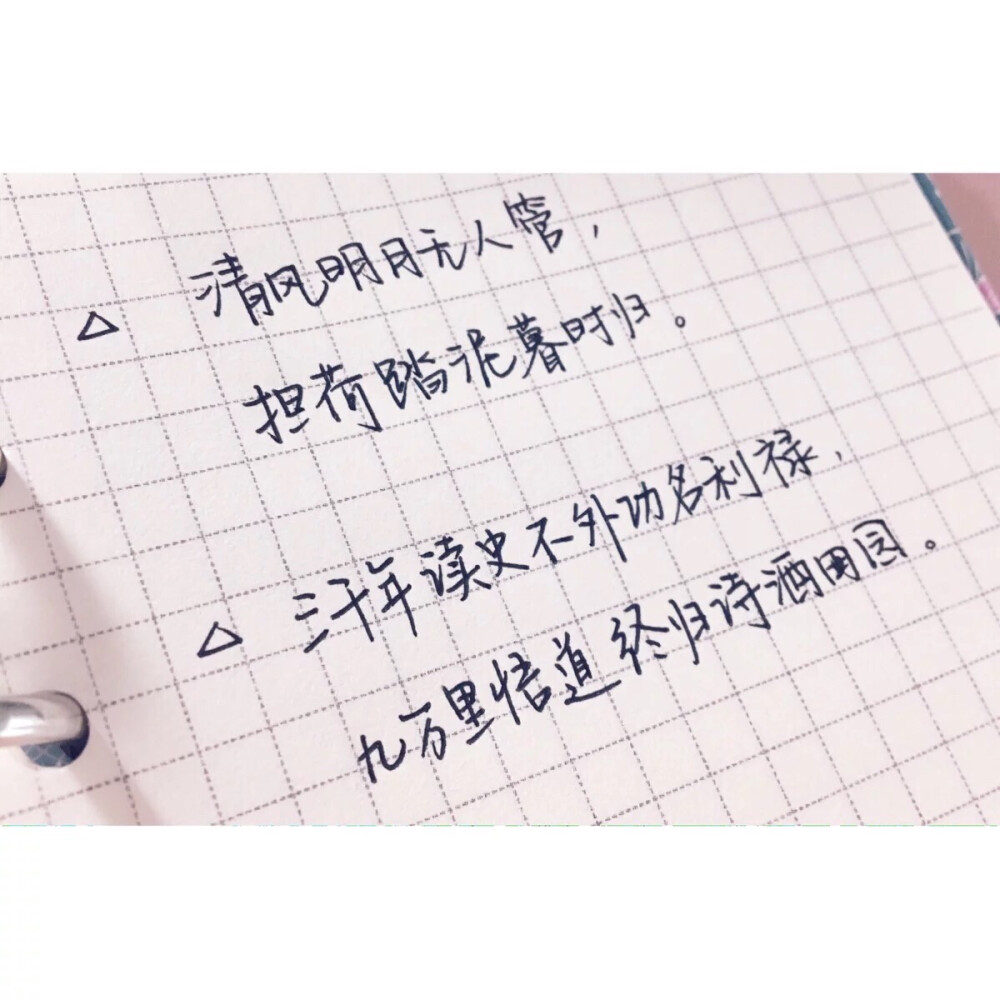 △ 清风明月无人管，
担荷踏泥暮时归。
△ 三千年读史不外功名利禄，
九万里悟道终归诗酒田园。